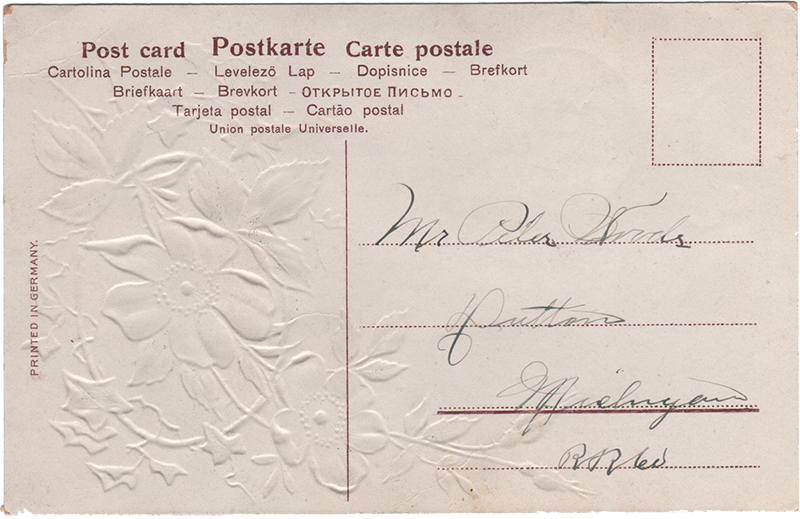 Post card Postkarte Carte postale
Cartolina Postale – Levelező Lap – Dopisnice – Brefkort
Briefkaart – Brevkort – ОТКРЫТОЕ ПИСЬМО –
Tarjeta postal – Cartão postal
Union postale Universelle.
PRINTED IN GERMANY.
Mr Peter Woods
Michigan